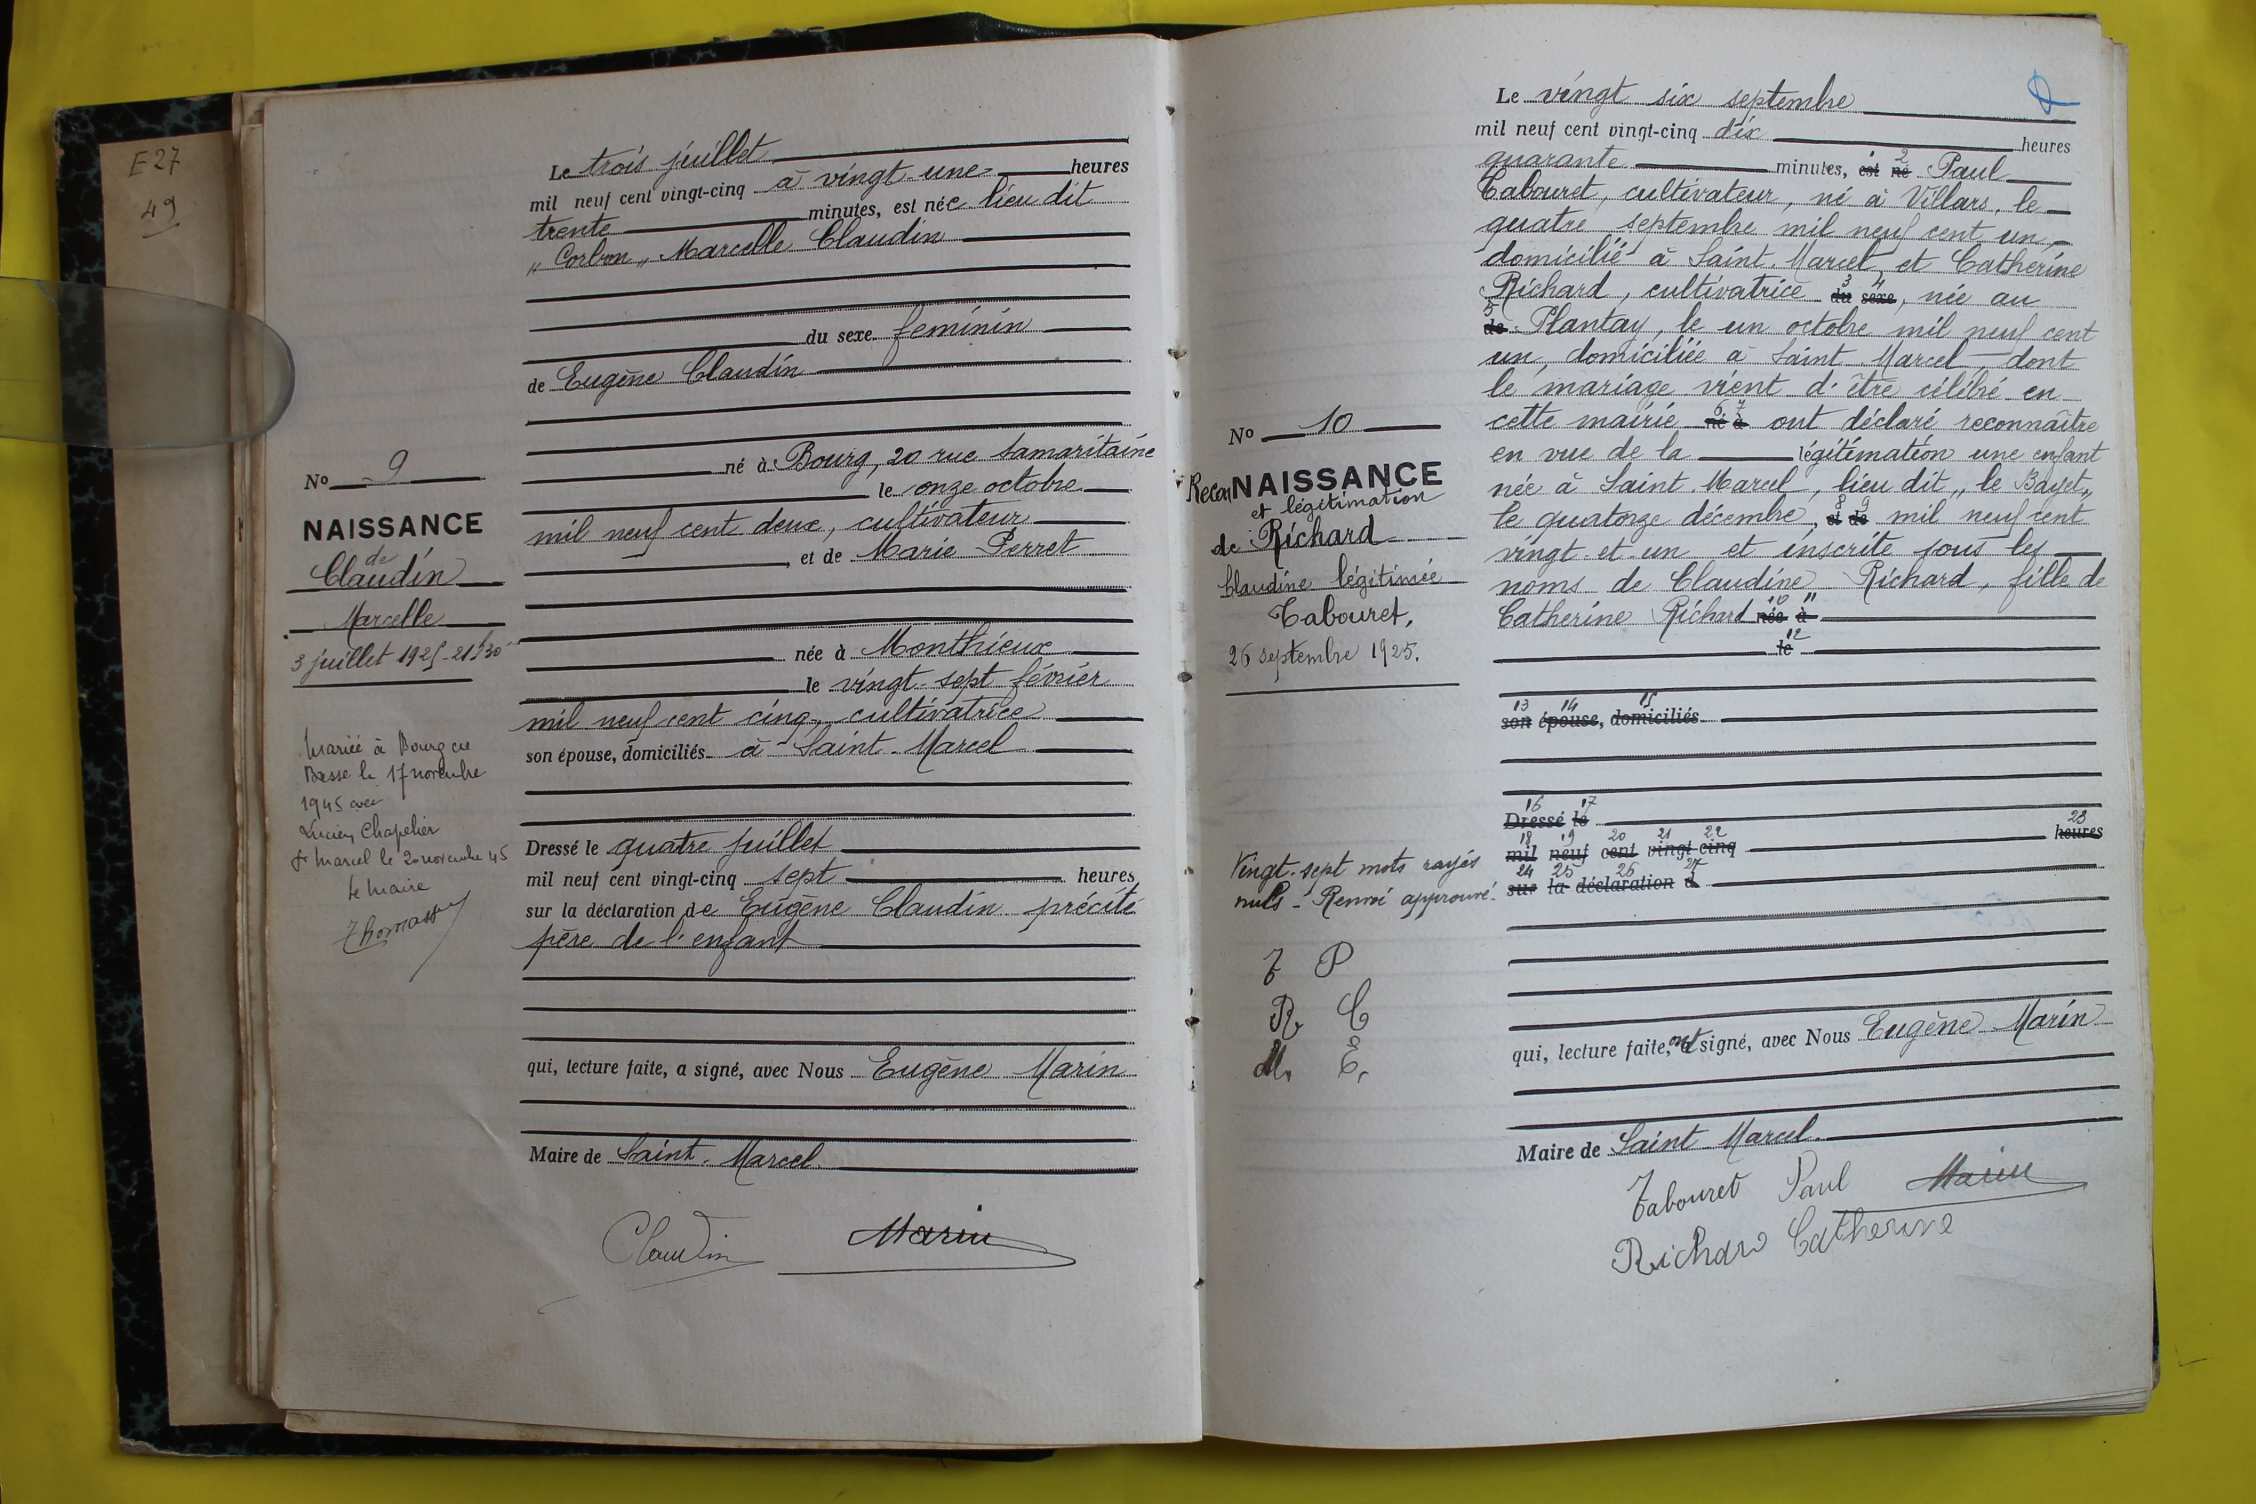 E27
49
No 9
NAISSANCE
de
Claudin
Marcelle
3 juillet 1925 - 21h30
Mariée à Bourg en
Bresse le 17 novembre
1945 avec
Lucien Chapelier
St Marcel le 20 novembre 45
Le Maire
Thomassy
Le trois juillet
mil neuf cent vingt-cinq à vingt-une heures
trente minutes, est née lieu dit
„ Corbon „ Marcelle Claudin
du sexe feminin
de Eugène Claudin
né à Bourg, 20 rue Samaritaine
le onze octobre
mil neuf cent deux, cultivateur
et de Marie Perret
née à Monthieux
le vingt-sept février
mil neuf cent cinq, cultivatrice
son épouse, domiciliés à Saint-Marcel
Dressé le quatre juillet
mil neuf cent vingt-cinq sept heures
sur la déclaration de Eugène Claudin précité
père de l'enfant
qui, lecture faite, a signé, avec Nous Eugène Marin
Maire de Saint-Marcel
Claudin Marin
No 10
ReconNAISSANCE
et légitimation
de Richard
Claudine légitimée
Tabouret.
26 septembre 1925.
Vingt-sept mots rayés
nuls - Renvoi approuvé.
T P
R C
M. E.
Le vingt six septembre
mil neuf cent vingt-cinq dix heures
quarante minutes, 1 est 2 né Paul
Tabouret, cultivateur, né à Villars, le
quatre septembre mil neuf cent un,
domicilié à Saint-Marcel, et Catherine
Richard, cultivatrice 3 du 4 sexe, née au
5 de Plantay, le un octobre mil neuf cent
un, domiciliée à Saint Marcel, dont
le mariage vient d'être célébré en
cette mairie 6 né 7 à ont déclaré reconnaître
en vue de la légitimation une enfant
née à Saint-Marcel, lieu dit „ le Bayet „
le quatorze décembre, 8 et 9 de mil neuf cent
vingt et un et inscrite sous les
noms de Claudine Richard, fille de
Catherine Richard 10 née 11 à
12 le
13 son 14 épouse, 15 domiciliés
16 Dressé 17 le
18 mil 19 neuf 20 cent 21 vingt 22 cinq 23 heures
24 sur 25 la 26 déclaration 27 d
qui, lecture faite, ont signé, avec Nous Eugène Marin
Maire de Saint-Marcel.
Tabouret Paul Marin
Richard Catherine